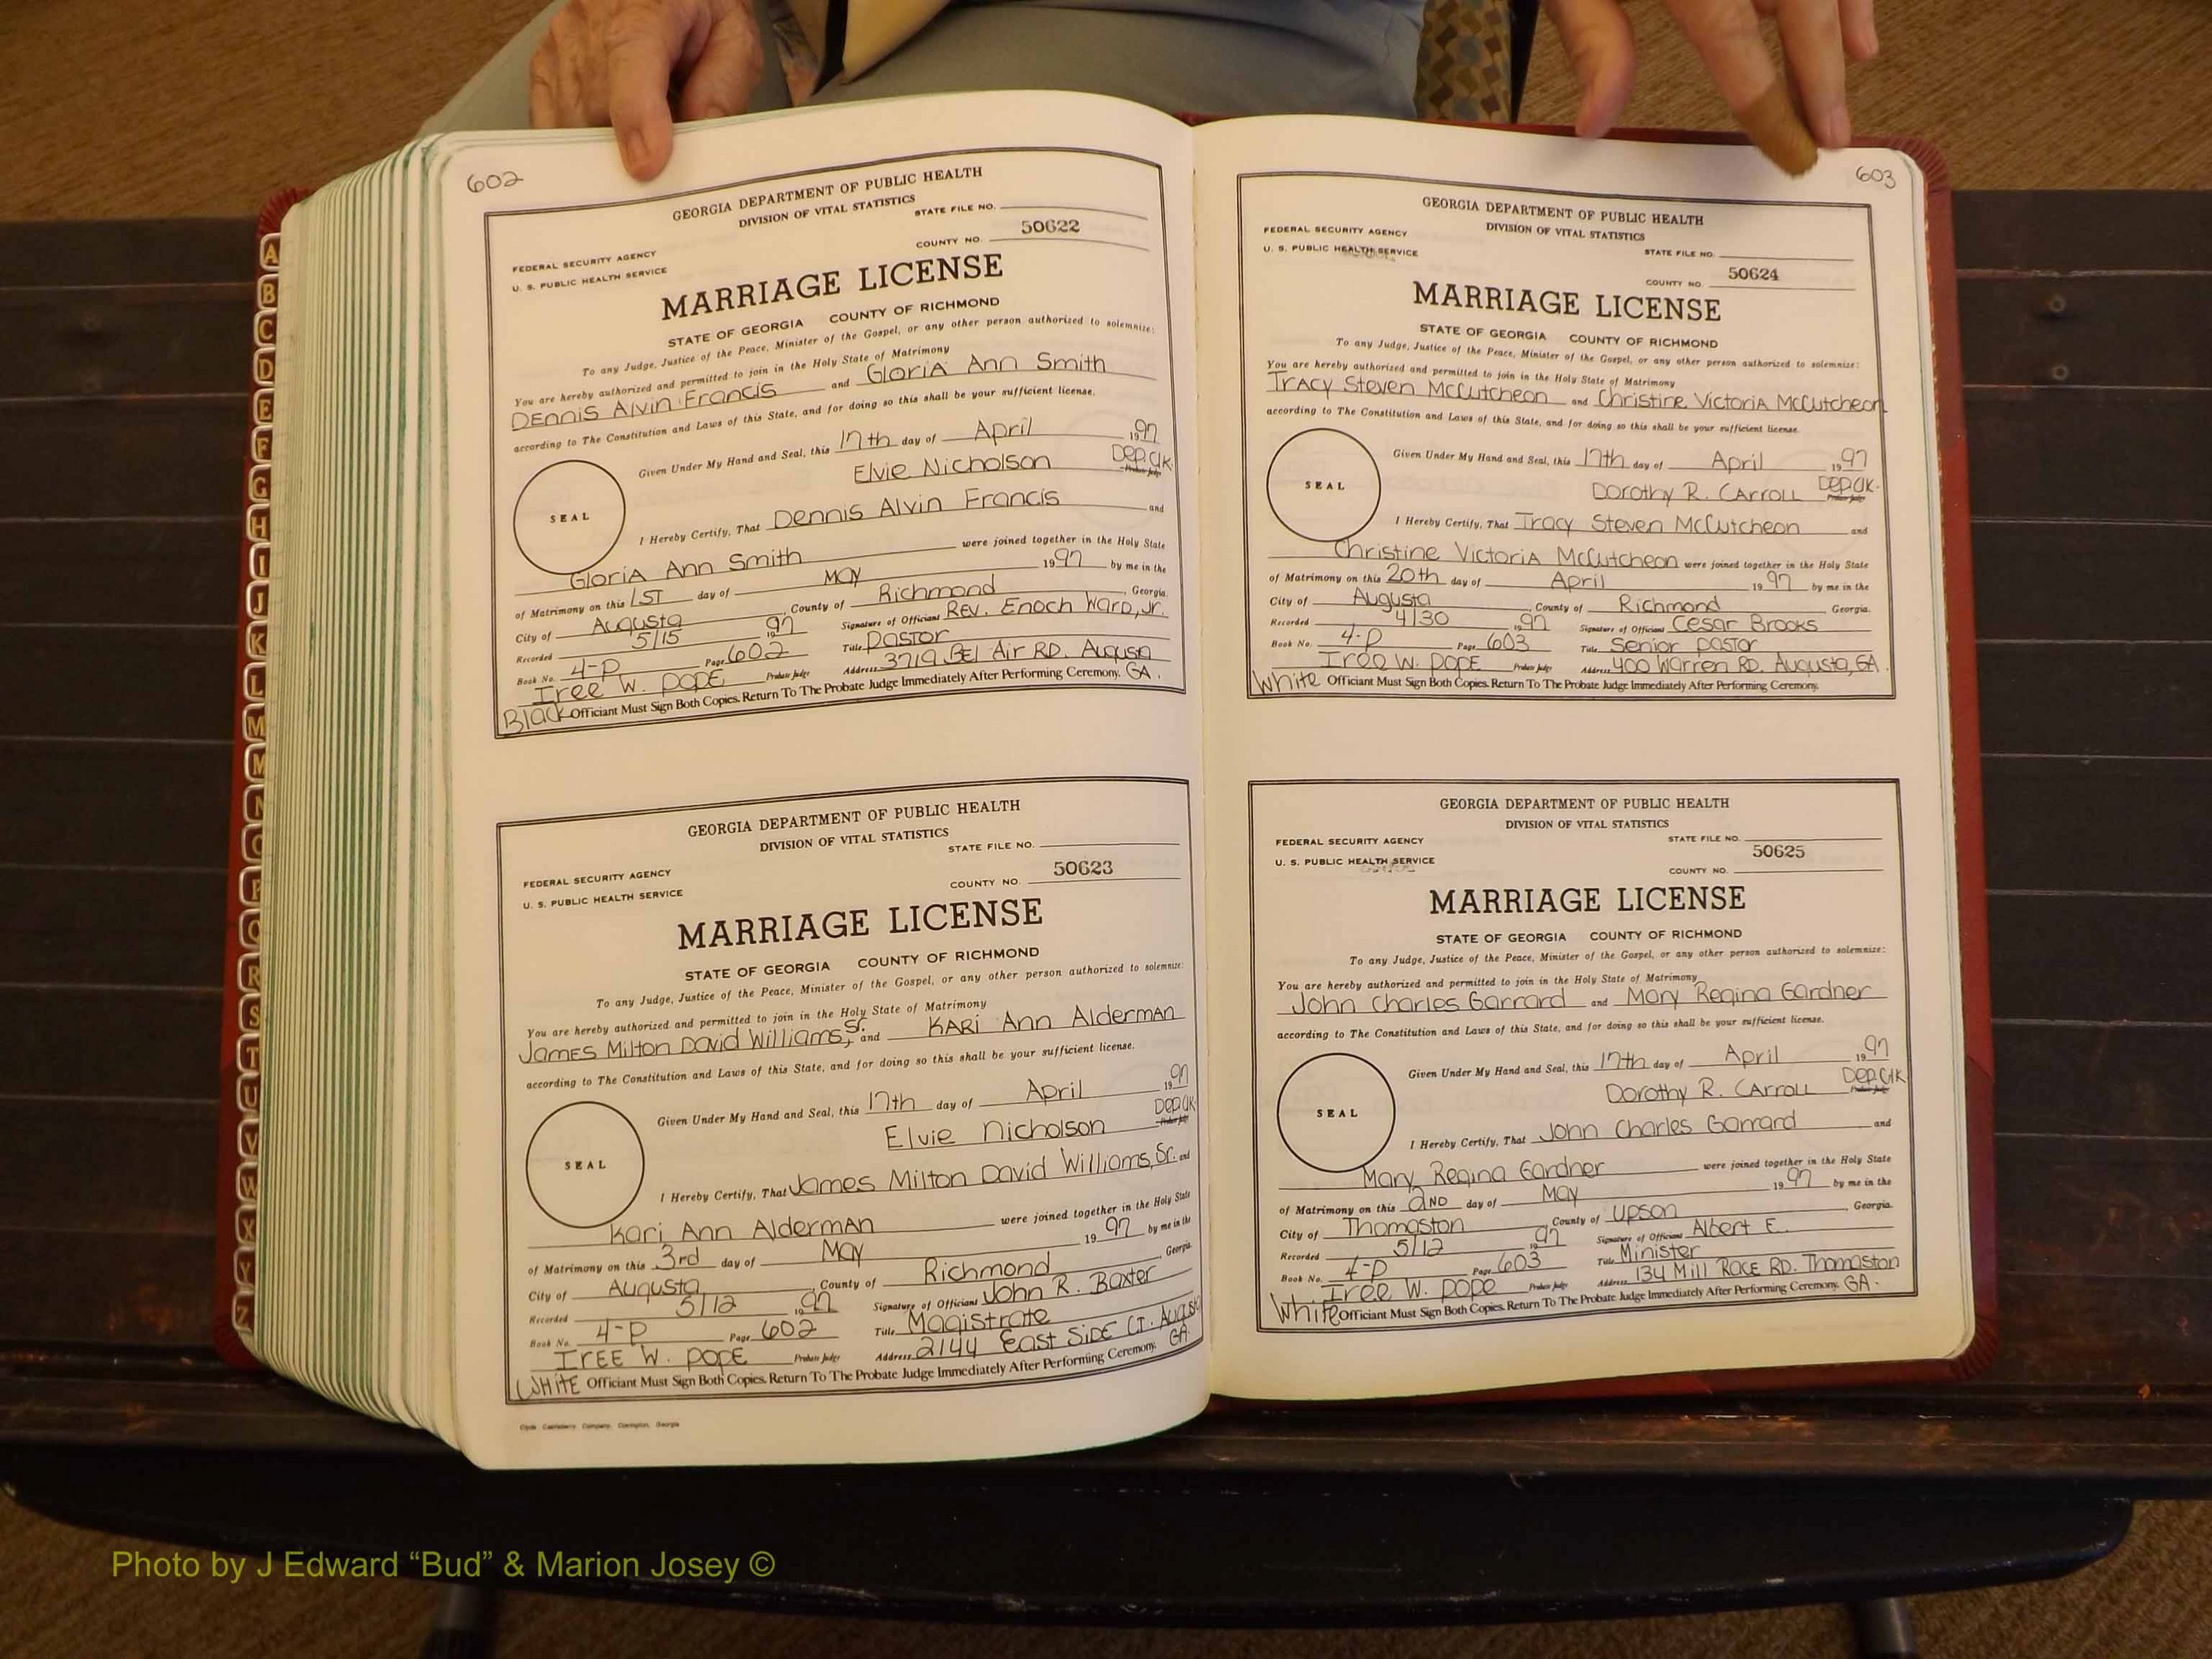 602
GEORGIA DEPARTMENT OF PUBLIC HEALTH
DIVISION OF VITAL STATISTICS
STATE FILE NO.
FEDERAL SECURITY AGENCY
U. S. PUBLIC HEALTH SERVICE
COUNTY NO. 50622
MARRIAGE LICENSE
STATE OF GEORGIA COUNTY OF RICHMOND
To any Judge, Justice of the Peace, Minister of the Gospel, or any other person authorized to solemnize:
You are hereby authorized and permitted to join in the Holy State of Matrimony
Dennis Alvin Francis and Gloria Ann Smith
according to The Constitution and Laws of this State, and for doing so this shall be your sufficient license.
Given Under My Hand and Seal, this 17th day of April 1997
Elvie Nicholson Dep. Clk. Probate Judge
SEAL
I Hereby Certify, That Dennis Alvin Francis and
Gloria Ann Smith were joined together in the Holy State
of Matrimony on this 1st day of May 1997 by me in the
City of Augusta, County of Richmond, Georgia.
Recorded 5/15 1997 Signature of Officiant Rev. Enoch Ward, Jr.
Book No. 4-P Page 602 Title Pastor
Iree W. Pope Probate Judge Address 3719 Bel Air Rd. Augusta GA.
Black Officiant Must Sign Both Copies. Return To The Probate Judge Immediately After Performing Ceremony.
GEORGIA DEPARTMENT OF PUBLIC HEALTH
DIVISION OF VITAL STATISTICS
STATE FILE NO.
FEDERAL SECURITY AGENCY
U. S. PUBLIC HEALTH SERVICE
COUNTY NO. 50623
MARRIAGE LICENSE
STATE OF GEORGIA COUNTY OF RICHMOND
To any Judge, Justice of the Peace, Minister of the Gospel, or any other person authorized to solemnize:
You are hereby authorized and permitted to join in the Holy State of Matrimony
James Milton David Williams, Sr. and Kari Ann Alderman
according to The Constitution and Laws of this State, and for doing so this shall be your sufficient license.
Given Under My Hand and Seal, this 17th day of April 1997
Elvie Nicholson Dep. Clk. Probate Judge
SEAL
I Hereby Certify, That James Milton David Williams, Sr. and
Kari Ann Alderman were joined together in the Holy State
of Matrimony on this 3rd day of May 1997 by me in the
City of Augusta, County of Richmond, Georgia.
Recorded 5/12 1997 Signature of Officiant John R. Baxter
Book No. 4-P Page 602 Title Magistrate
Iree W. Pope Probate Judge Address 2144 East Side Ct. Augusta GA.
White Officiant Must Sign Both Copies. Return To The Probate Judge Immediately After Performing Ceremony.
Clyde Castleberry Company, Covington, Georgia
603
GEORGIA DEPARTMENT OF PUBLIC HEALTH
DIVISION OF VITAL STATISTICS
FEDERAL SECURITY AGENCY
U. S. PUBLIC HEALTH SERVICE
STATE FILE NO.
COUNTY NO. 50624
MARRIAGE LICENSE
STATE OF GEORGIA COUNTY OF RICHMOND
To any Judge, Justice of the Peace, Minister of the Gospel, or any other person authorized to solemnize:
You are hereby authorized and permitted to join in the Holy State of Matrimony
Tracy Steven McCutcheon and Christine Victoria McCutcheon
according to The Constitution and Laws of this State, and for doing so this shall be your sufficient license.
Given Under My Hand and Seal, this 17th day of April 1997
Dorothy R. Carroll Dep. Clk. Probate Judge
SEAL
I Hereby Certify, That Tracy Steven McCutcheon and
Christine Victoria McCutcheon were joined together in the Holy State
of Matrimony on this 20th day of April 1997 by me in the
City of Augusta, County of Richmond Georgia.
Recorded 4/30 1997 Signature of Officiant Cesar Brooks
Book No. 4-P Page 603 Title Senior Pastor
Iree W. Pope Probate Judge Address 400 Warren Rd. Augusta, GA.
White Officiant Must Sign Both Copies. Return To The Probate Judge Immediately After Performing Ceremony.
GEORGIA DEPARTMENT OF PUBLIC HEALTH
DIVISION OF VITAL STATISTICS
FEDERAL SECURITY AGENCY
STATE FILE NO.
U. S. PUBLIC HEALTH SERVICE
COUNTY NO. 50625
MARRIAGE LICENSE
STATE OF GEORGIA COUNTY OF RICHMOND
To any Judge, Justice of the Peace, Minister of the Gospel, or any other person authorized to solemnize:
You are hereby authorized and permitted to join in the Holy State of Matrimony
John Charles Garrard and Mary Regina Gardner
according to The Constitution and Laws of this State, and for doing so this shall be your sufficient license.
Given Under My Hand and Seal, this 17th day of April 1997
Dorothy R. Carroll Dep. Clk. Probate Judge
SEAL
I Hereby Certify, That John Charles Garrard and
Mary Regina Gardner were joined together in the Holy State
of Matrimony on this 2nd day of May 1997 by me in the
City of Thomaston, County of Upson, Georgia.
Recorded 5/12 1997 Signature of Officiant Albert E.
Book No. 4-P Page 603 Title Minister
Iree W. Pope Probate Judge Address 134 Mill Race Rd. Thomaston GA.
White Officiant Must Sign Both Copies. Return To The Probate Judge Immediately After Performing Ceremony.
A
B
C
D
E
F
G
H
I
J
K
L
M
M
N
O
P
Q
R
S
T
U
V
W
X
Y
Z
Photo by J Edward “Bud” & Marion Josey ©